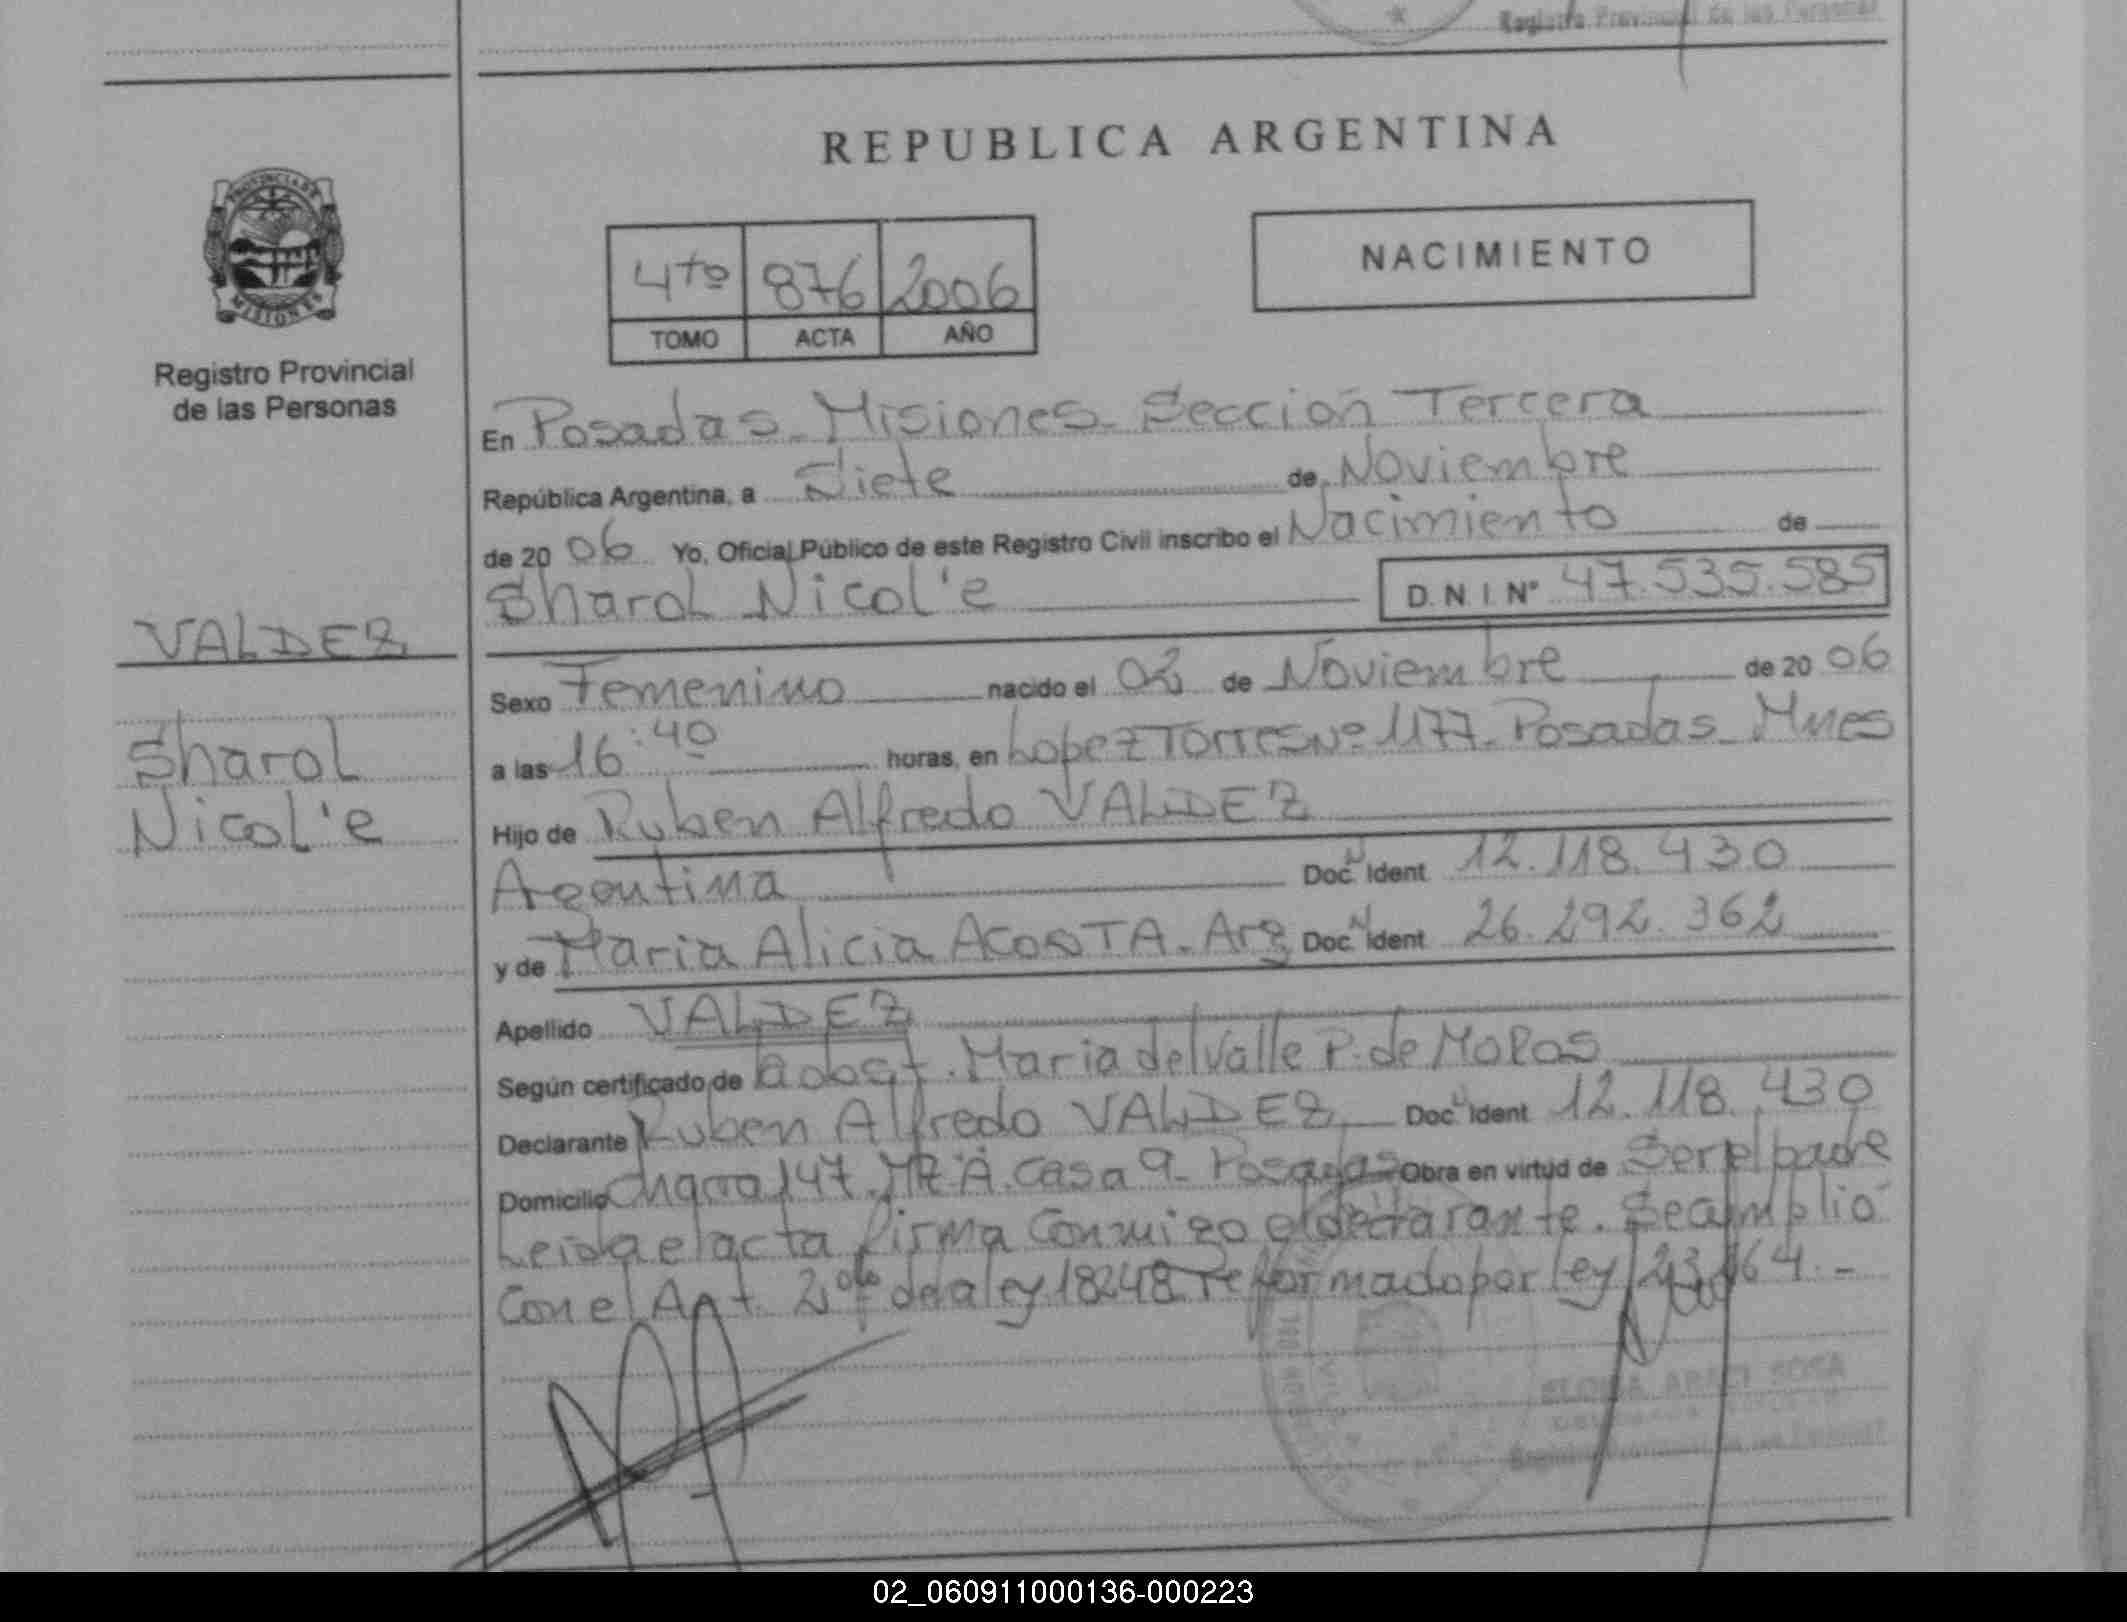 Registro Provincial de las Personas
REPUBLICA ARGENTINA
PROVINCIA DE
MISIONES
4to 876 2006
TOMO ACTA AÑO
NACIMIENTO
Registro Provincial
de las Personas
En Posadas - Misiones - Sección Tercera
República Argentina, a Siete de Noviembre
de 2006 Yo, Oficial Público de este Registro Civil inscribo el Nacimiento de
Sharol Nicol'e D.N.I. Nº 47.535.585
VALDEZ
Sharol
Nicol'e
Sexo Femenino nacido el 02 de Noviembre de 2006
a las 16:40 horas, en Lopez Torres Nº 1177 - Posadas - Mnes
Hijo de Ruben Alfredo VALDEZ
Agentina Doc. N Ident 12.118.430
y de Maria Alicia ACOSTA - Arg Doc. N Ident 26.292.362
Apellido VALDEZ
Según certificado de la obst. Maria del Valle P. de
Declarante Ruben Alfredo VALDEZ Doc. N Ident 12.118.430
Domicilio Chacra 147. Mz A. Casa 9 - Posadas Obra en virtud de Ser el padre
Leida el acta firma Conmigo el declarante. Se cumplió
Con el Art. 2º de la ley 18248 reformado por ley
ARECI SOSA
02_060911000136-000223